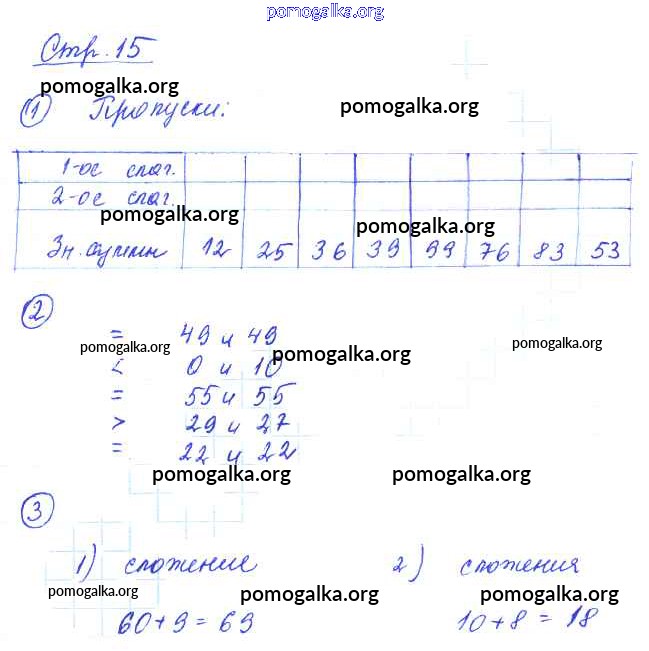 pomogalka.org
Стр. 15
pomogalka.org
pomogalka.org
1 Пропуски:
1-ое слаг.
2-ое слаг.
pomogalka.org
pomogalka.org
Зн. суммы 12 25 36 39 99 76 83 53
2
= 49 и 49
pomogalka.org
pomogalka.org
pomogalka.org
< 0 и 10
= 55 и 55
> 29 и 27
= 22 и 22
pomogalka.org
pomogalka.org
3
1) сложение 2) сложения
pomogalka.org
pomogalka.org
pomogalka.org
60+9=69 10+8=18